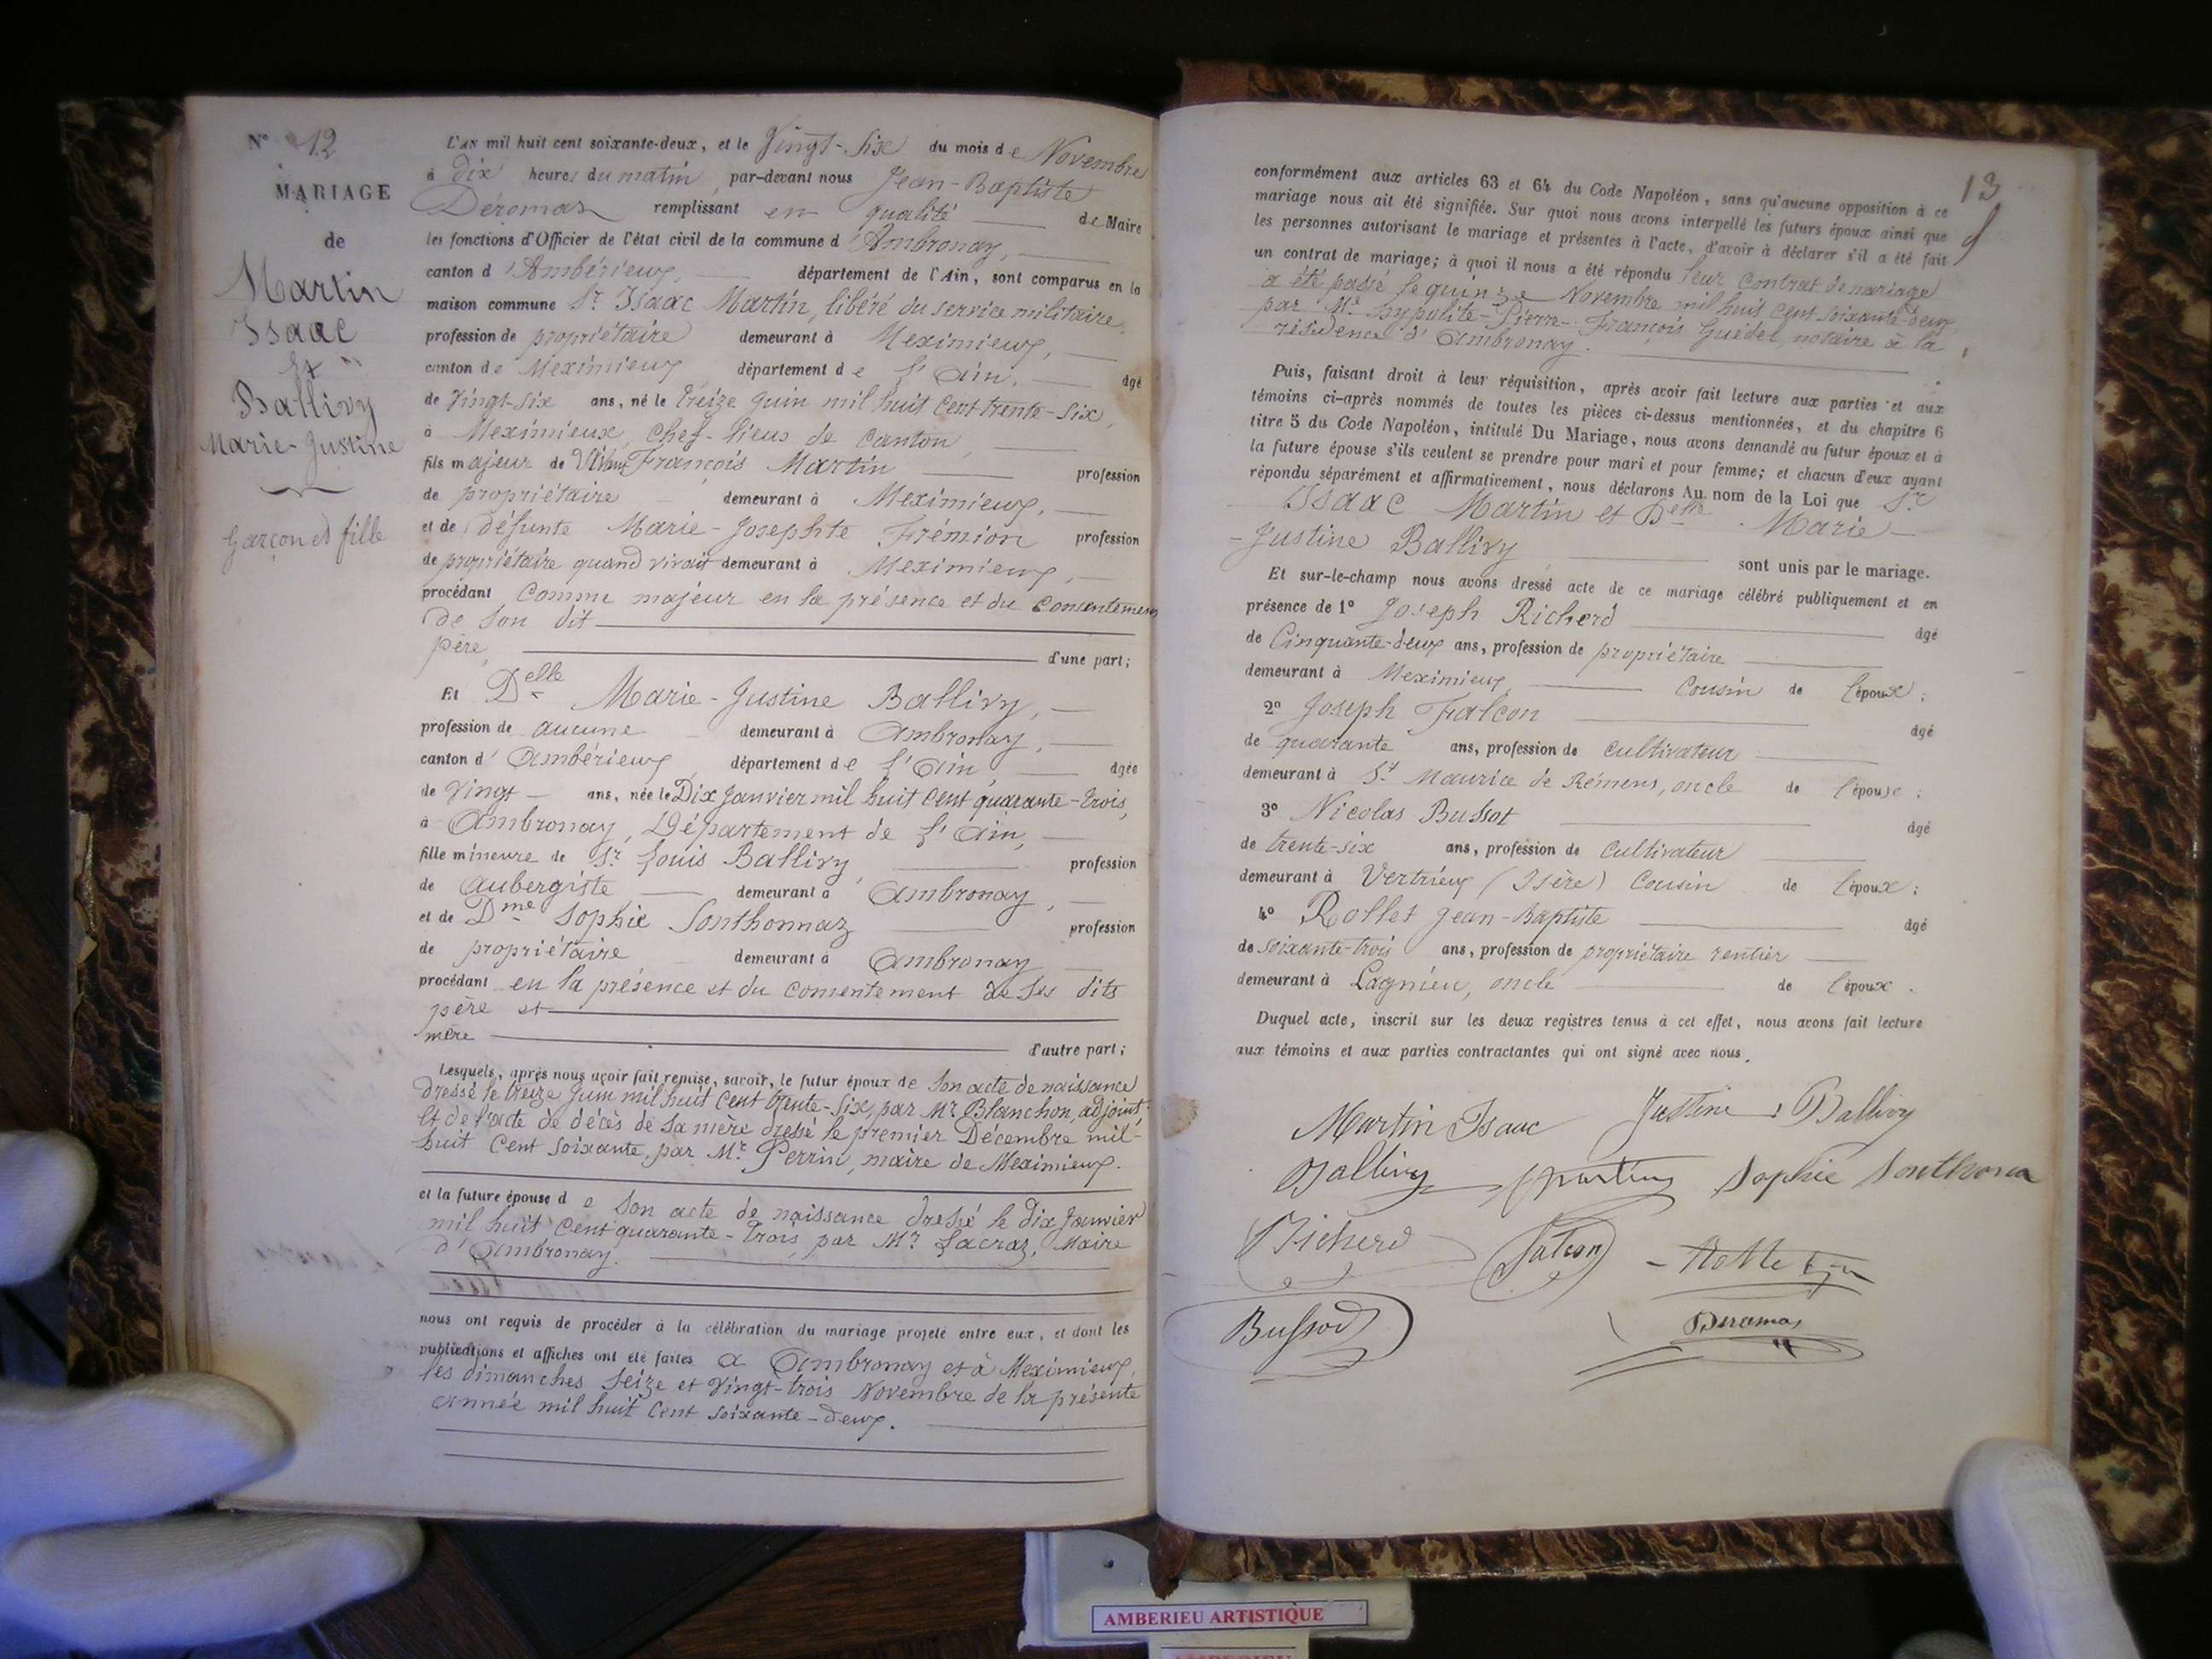 N° 12
MARIAGE
de
Martin
Isaac
Et
Ballivy
Marie-Justine
Garçon et fille
L'AN mil huit cent soixante-deux, et le Vingt-Six du mois de Novembre
à dix heures du matin, par-devant nous Jean-Baptiste
Déromas remplissant en qualité de Maire
les fonctions d'Officier de l'état civil de la commune d'Ambronay,
canton d'Ambérieux, département de l'Ain, sont comparus en la
maison commune Sr Isaac Martin, libéré du service militaire,
profession de propriétaire demeurant à Meximieux,
canton de Meximieux département de l'Ain, âgé
de Vingt-six ans, né le treize Juin mil huit cent trente-six,
à Meximieux, chef-lieux de canton,
fils majeur de François Martin profession
de propriétaire demeurant à Meximieux,
et de défunte Marie-Josephte Frémion profession
de propriétaire quand vivait demeurant à Meximieux,
procédant comme majeur en la présence et du consentement
de son dit
père, d'une part;
Et Delle Marie-Justine Ballivy,
profession de aucune demeurant à Ambronay,
canton d'Ambérieux département de l'Ain, âgée
de Vingt ans, née le Dix Janvier mil huit cent quarante-trois,
à Ambronay, Département de l'Ain,
fille mineure de Sr Louis Ballivy, profession
de Aubergiste demeurant à Ambronay,
et de Dme Sophie Sonthonnaz profession
de propriétaire demeurant à Ambronay
procédant en la présence et du consentement de ses dits
père et
mère d'autre part;
Lesquels, après nous avoir fait remise, savoir, le futur époux de son acte de naissance
dressé le treize Juin mil huit cent trente-six, par Mr Blanchon, adjoint,
Et de l'acte de décès de sa mère dressé le premier Décembre mil-
huit cent soixante, par Mr Perrin, maire de Meximieux.
et la future épouse de son acte de naissance dressé le dix Janvier
mil huit cent quarante-trois, par Mr Lacraz, Maire
d'Ambronay.
nous ont requis de procéder à la célébration du mariage projeté entre eux, et dont les
publications et affiches ont été faites à Ambronay et à Meximieux,
les dimanches Seize et Vingt-trois Novembre de la présente
année mil huit cent soixante-deux.
13
conformément aux articles 63 et 64 du Code Napoléon, sans qu'aucune opposition à ce
mariage nous ait été signifiée. Sur quoi nous avons interpellé les futurs époux ainsi que
les personnes autorisant le mariage et présentes à l'acte, d'avoir à déclarer s'il a été fait
un contrat de mariage; à quoi il nous a été répondu leur contrat de mariage
a été passé le quinze Novembre mil huit cent soixante-deux
par Me Hypolite-Pierre-François Guédel, notaire à la
résidence d'Ambronay.
Puis, faisant droit à leur réquisition, après avoir fait lecture aux parties et aux
témoins ci-après nommés de toutes les pièces ci-dessus mentionnées, et du chapitre 6
titre 5 du Code Napoléon, intitulé Du Mariage, nous avons demandé au futur époux et à
la future épouse s'ils veulent se prendre pour mari et pour femme; et chacun d'eux ayant
répondu séparément et affirmativement, nous déclarons Au nom de la Loi que Sr
Isaac Martin et Delle Marie-
-Justine Ballivy sont unis par le mariage.
Et sur-le-champ nous avons dressé acte de ce mariage célébré publiquement et en
présence de 1° Joseph Richerd âgé
de Cinquante-deux ans, profession de propriétaire
demeurant à Meximieux, Cousin de l'époux;
2° Joseph Falcon âgé
de quarante ans, profession de cultivateur
demeurant à St Maurice de Rémens, oncle de l'épouse;
3° Nicolas Bussot âgé
de trente-six ans, profession de cultivateur
demeurant à Vertrieux (Isère) Cousin de l'époux;
4° Rollet Jean-Baptiste âgé
de soixante-trois ans, profession de propriétaire rentier
demeurant à Lagnieu, oncle de l'époux.
Duquel acte, inscrit sur les deux registres tenus à cet effet, nous avons fait lecture
aux témoins et aux parties contractantes qui ont signé avec nous.
Martin Isaac Justine Ballivy
Ballivy Martin Sophie Sonthona
Richerd Falcon Rollet
Bussod Deromas
AMBERIEU ARTISTIQUE